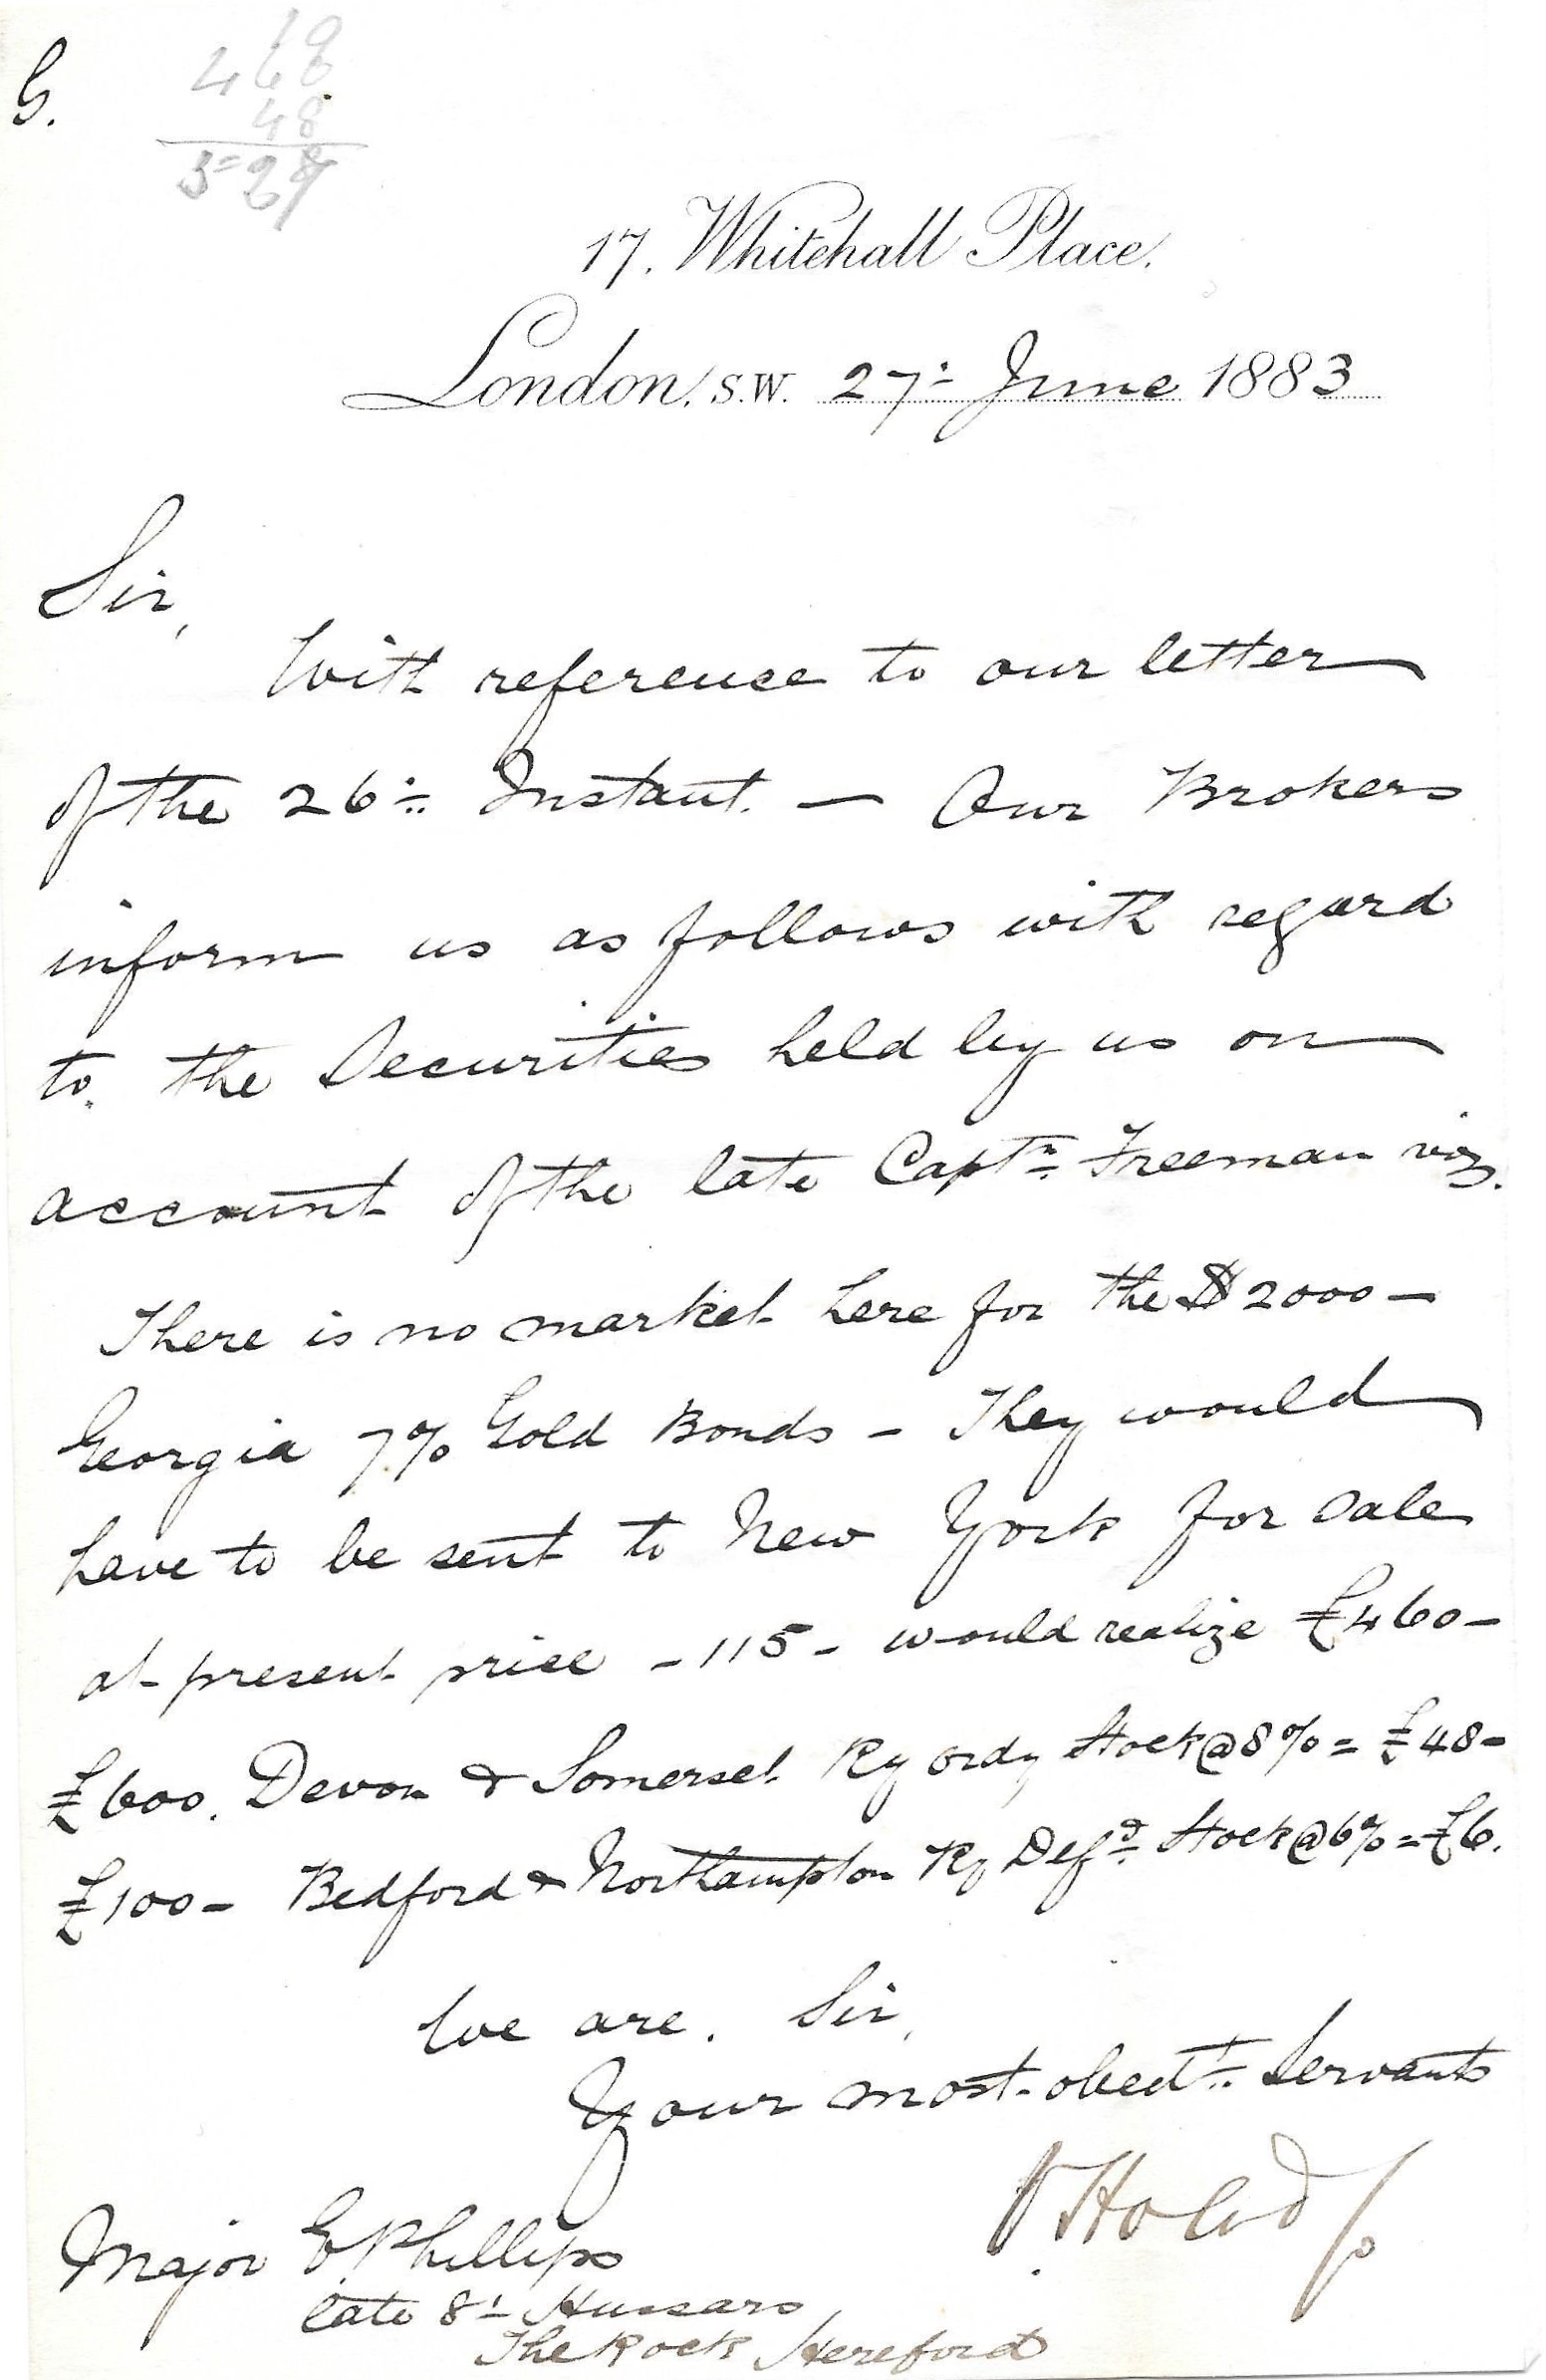 G.
19
468
48
17, Whitehall Place.
London, S.W. 27th June 1883
Sir,
With reference to our letter
of the 26th Instant. — Our Brokers
inform us as follows with regard
to the Securities held by us on
account of the late Captn Freeman viz.
There is no market here for the $2000 —
Georgia 7% Gold Bonds — They would
have to be sent to New York for sale
at present price — 115 — would realize £460 —
£600. Devon & Somerset Ry ordy Stock @ 8% = £48 —
£100 — Bedford & Northampton Ry Defd Stock @ 6% = £6.
We are. Sir,
Your most obedt Servants
Major E Phillips
late 8th Hussars
The Rock Hereford